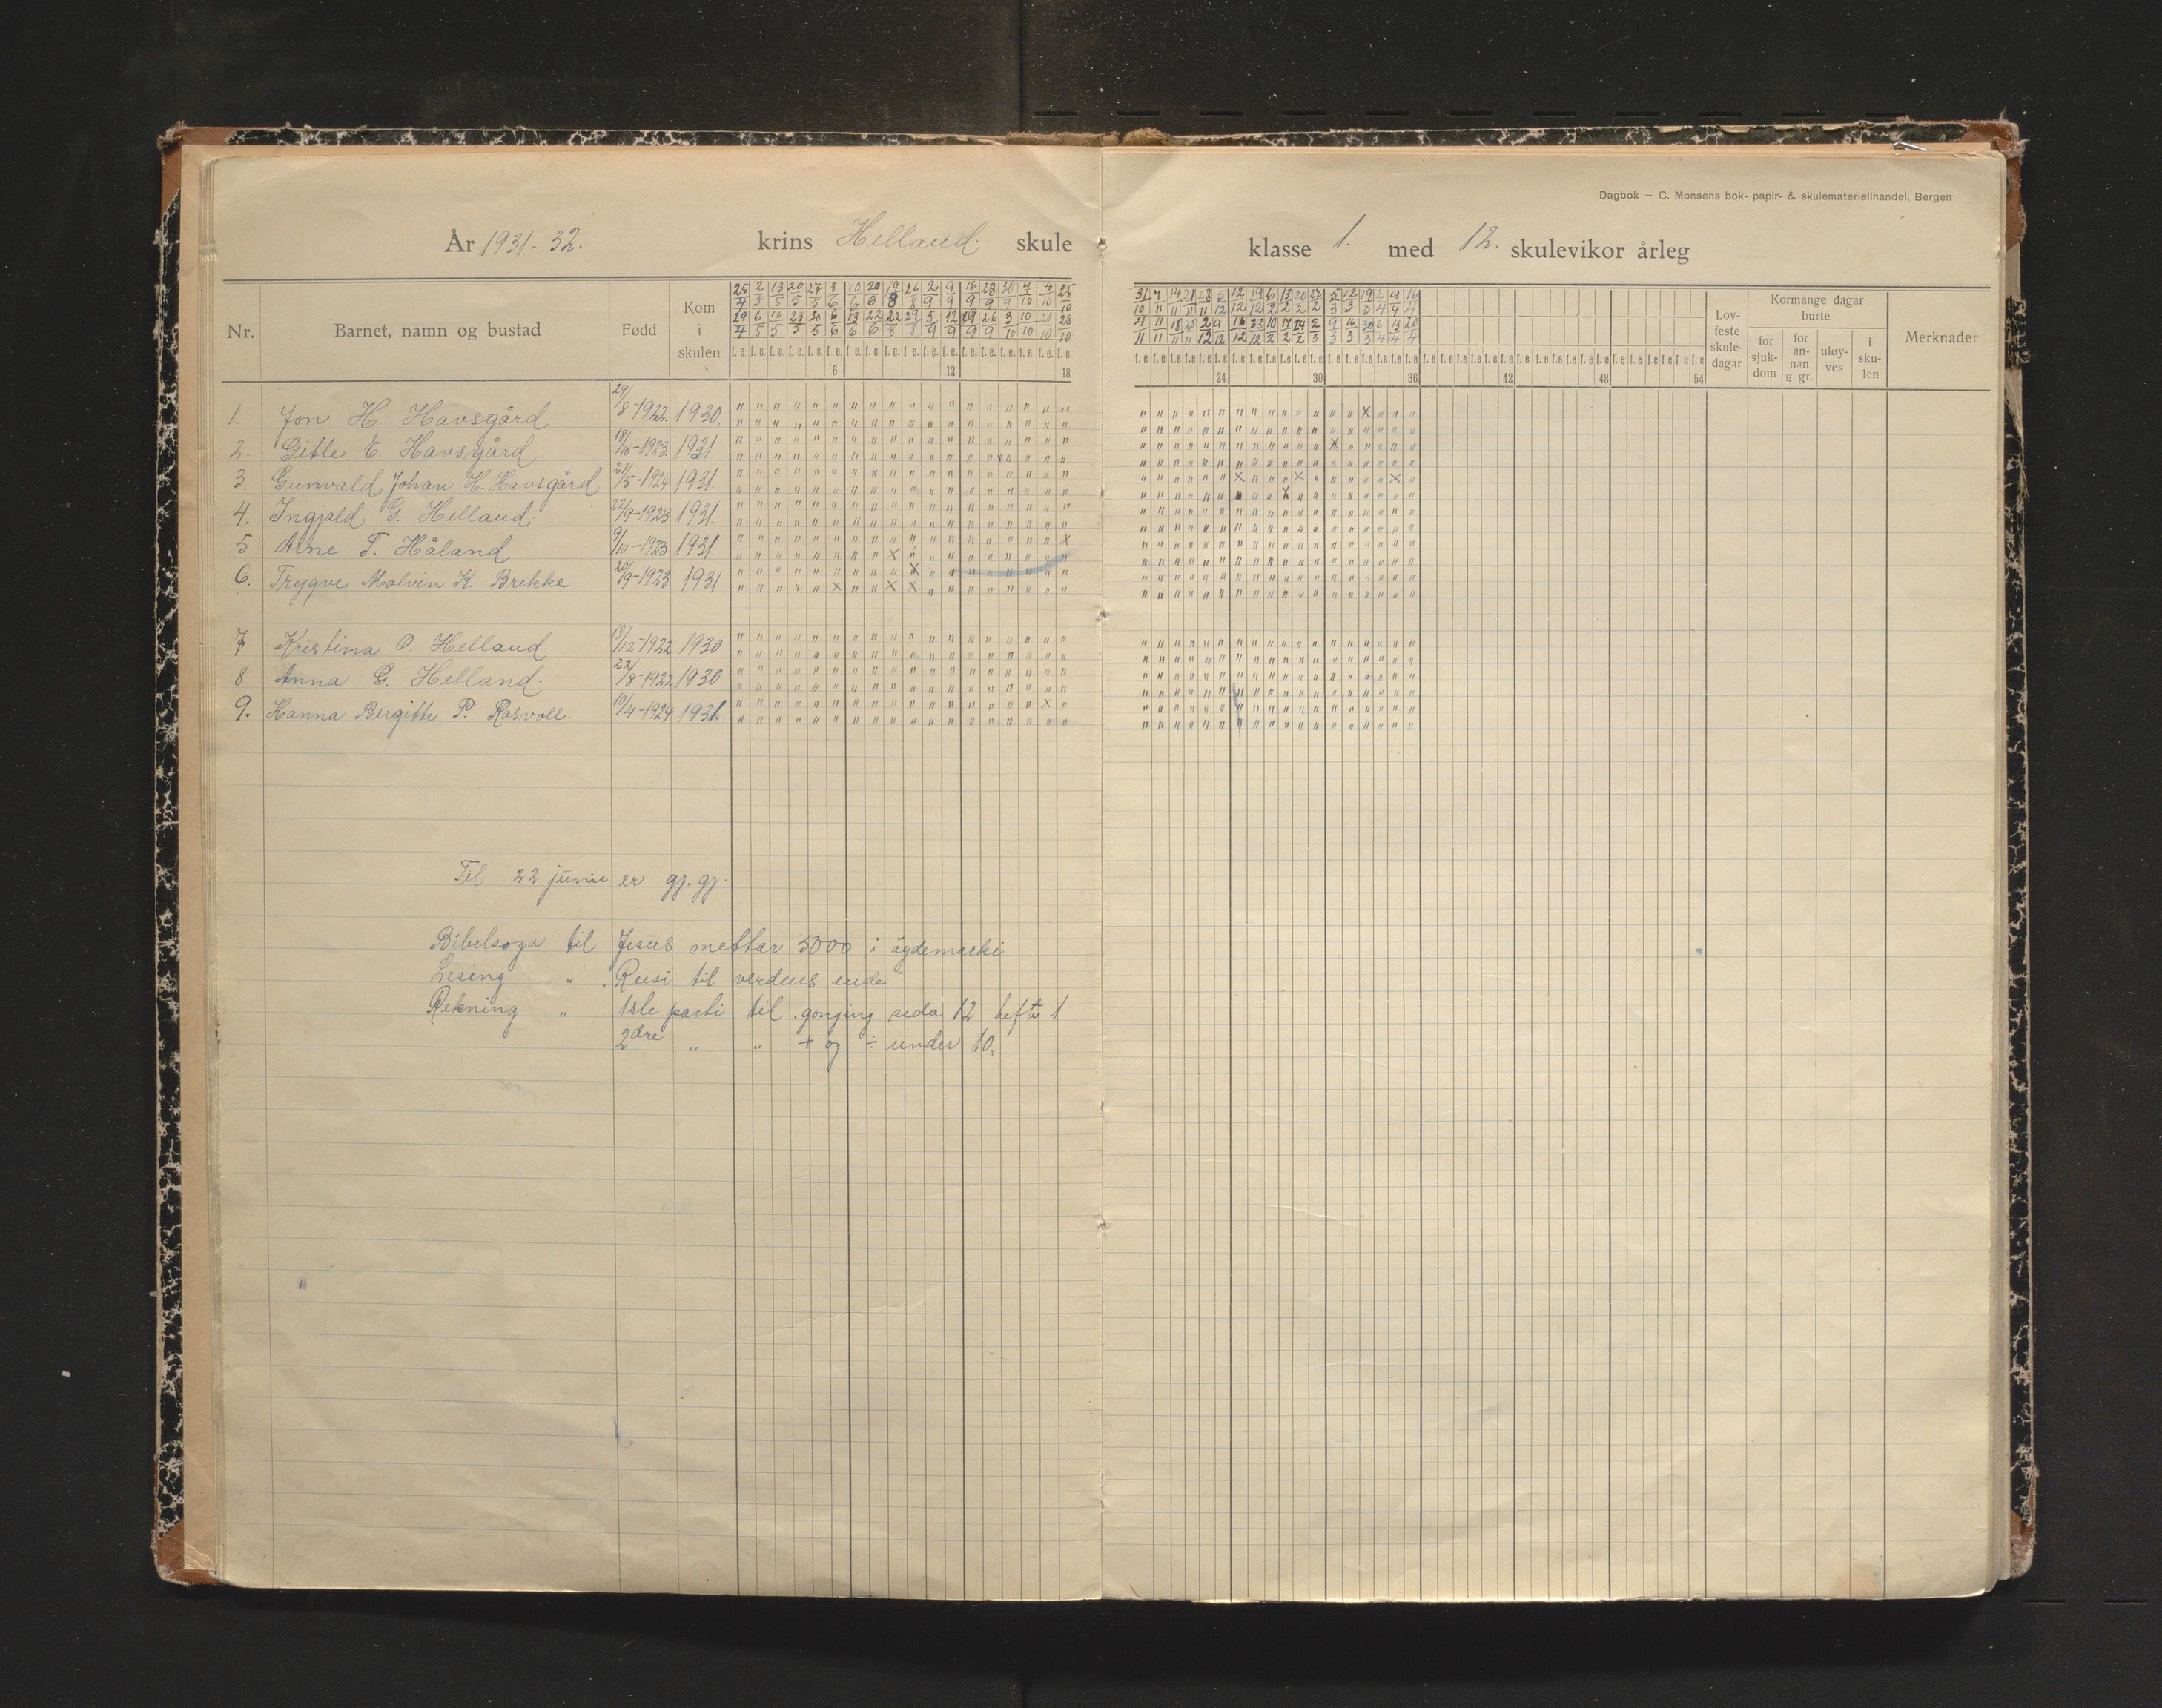 Dagbok — C. Monsens bok- papir- & skulemateriellhandel, Bergen
År 1931-32. krins Helland. skule klasse 1. med 12. skulevikor årleg
Nr. Barnet, namn og bustad Født Kom i skulen
Lovfeste skuledagar Kormange dagar burte for sjukdom for annan g. gr. uløyves i skulen Merknader
6 12 18 24 30 36 42 48 54
1. Jon H. Havsgård 29/8-1922. 1930.
2. Gitle E. Havsgård 18/10-1923. 1931.
3. Gunvald Johan H. Havsgård 21/5-1924 1931.
4. Ingjald G. Helland. 22/9-1923 1931.
5. Arne T. Håland 9/10-1923 1931.
6. Trygve Malvin K. Brekke 20/9-1923 1931
7 Kristina O. Helland. 13/12-1922 1930
8. Anna G. Helland. 22/8-1922 1930
9. Hanna Bergitte P. Rosvoll. 10/4-1924. 1931.
Til 22 juni er gj. gj.
Bibelsoga til Jesus mettar 5000 i øydemarki
Lesing " "Reisi til verdens ende"
Rekning " 1ste parti til gonging seda 12 hefte 1
2dre " " + og ÷ under 10.